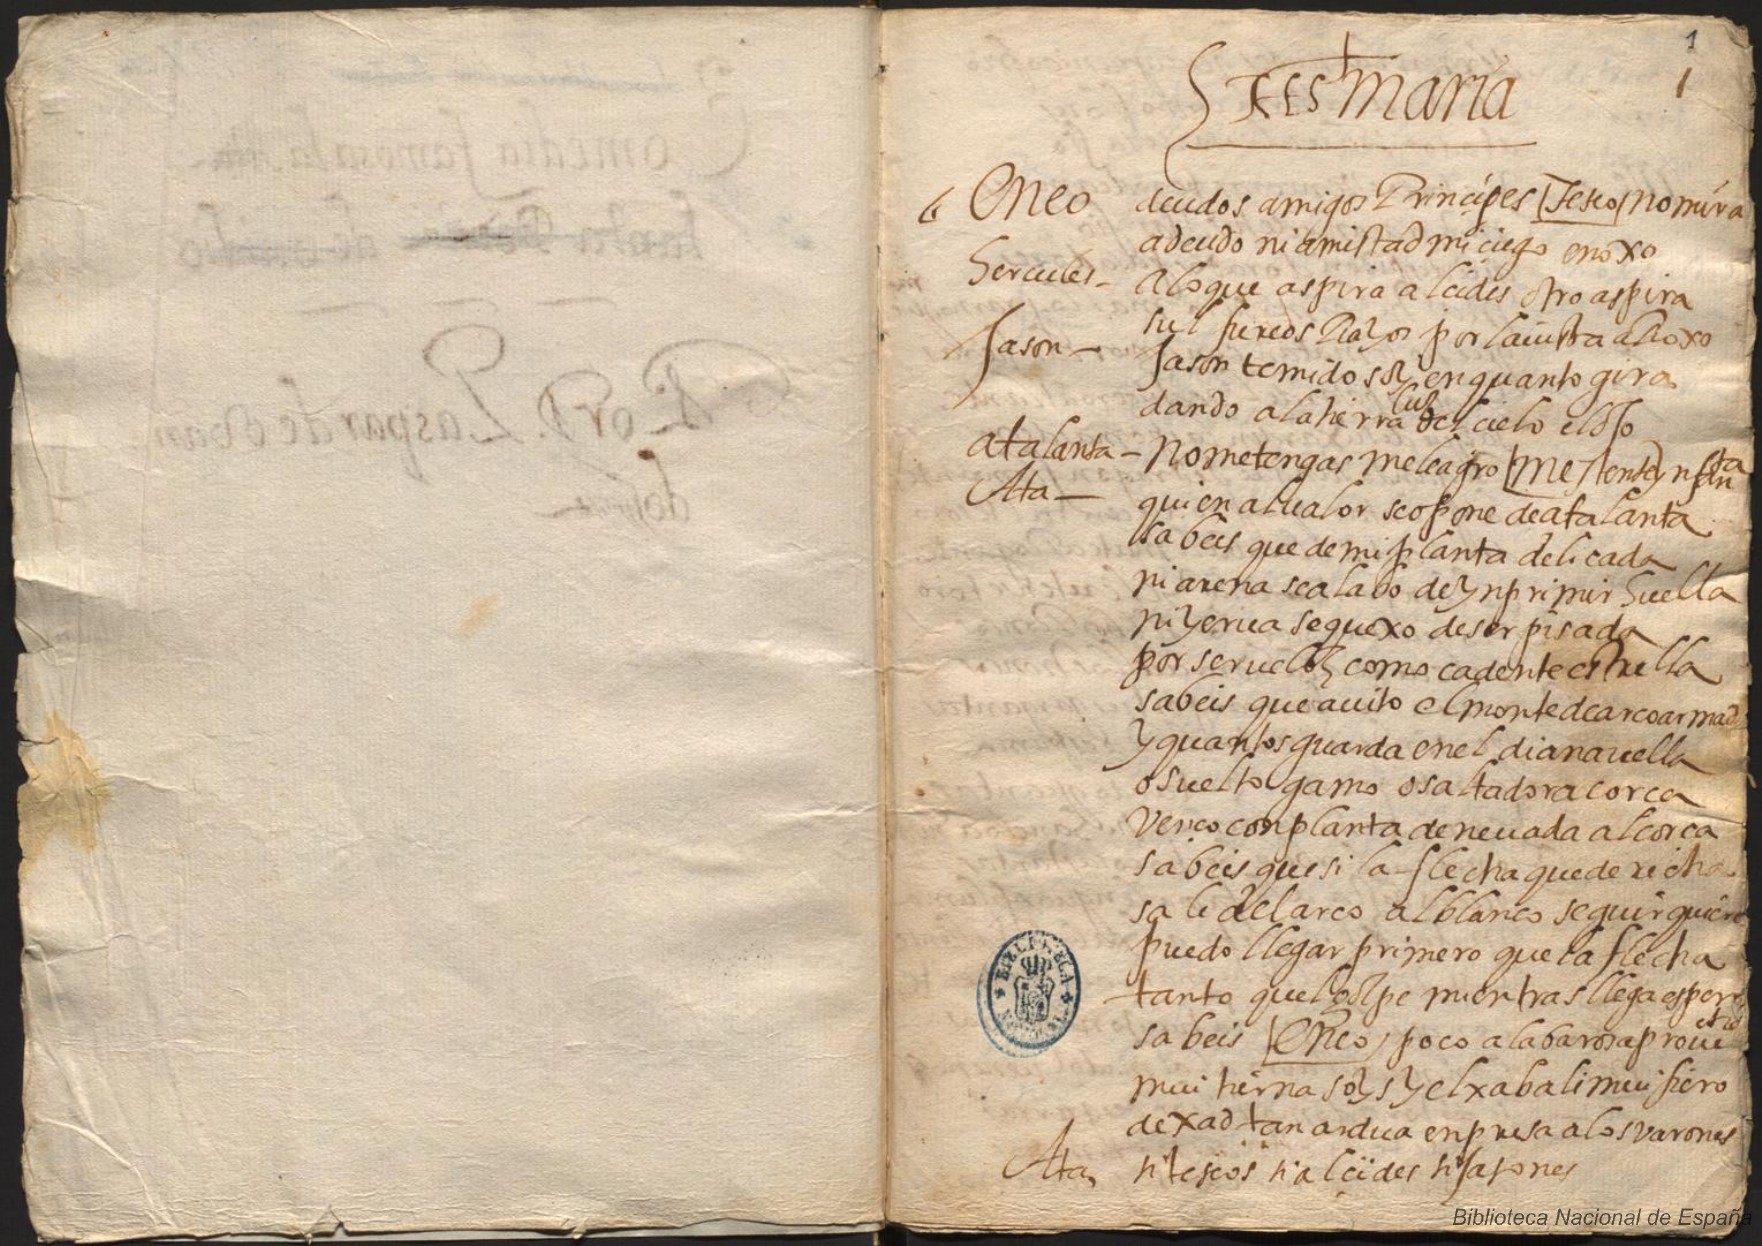 1
1
Jesus Maria
Oneo deudos amigos Principes Teseo no mira
a deudo ni amistad mi ciego enoxo
Hercules- A lo que aspira alcides otro aspira
por la
Jason- Jason temido soy en quanto gira
dando a la tierra luz del cielo el
Atalanta- No me tengas meleagro Me tente
Ata- quien al valor se opone de atalanta
sabeis que de mi planta delicada
ni arena se alabo de ynprimir huella
ni yerua se quexo de ser pisada
por ser veloz como cadente estrella
sabeis que auito el monte de arco armad
y quantos guarda en el diana vella
o suelto gamo o saltadora corça
Venço con planta de neuada alcorça
sabeis que si la flecha que derecha
sale del arco al blanco seguir quiero
puedo llegar primero que la flecha
tanto que el golpe mientras llega espero
sabeis Oneo poco alabarosa
mui tierna soys y el xabali mui fiero
dexad tan ardua enpresa a los varones
Ata, ni teseos ni alcides ni jasones
BIBLIOTECA NACIONAL
Biblioteca Nacional de España